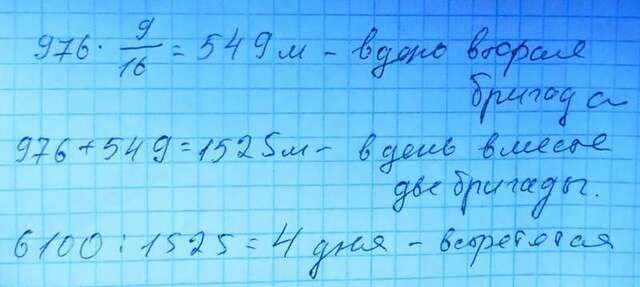 976 · 9/16 = 549 м - в день вторая
бригада
976 + 549 = 1525 м - в день вместе
две бригады.
6100 : 1525 = 4 дня - встретятся